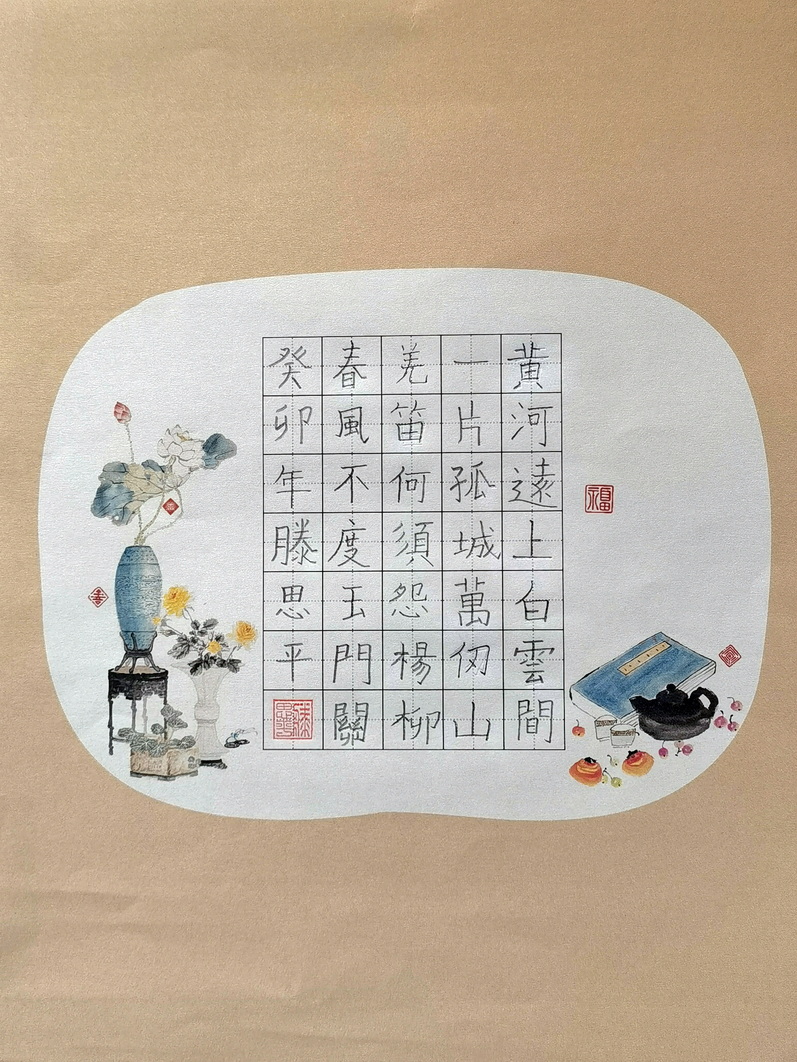 黃河遠上白雲間
一片孤城萬仞山
羌笛何須怨楊柳
春風不度玉門關
癸卯年滕思平
福